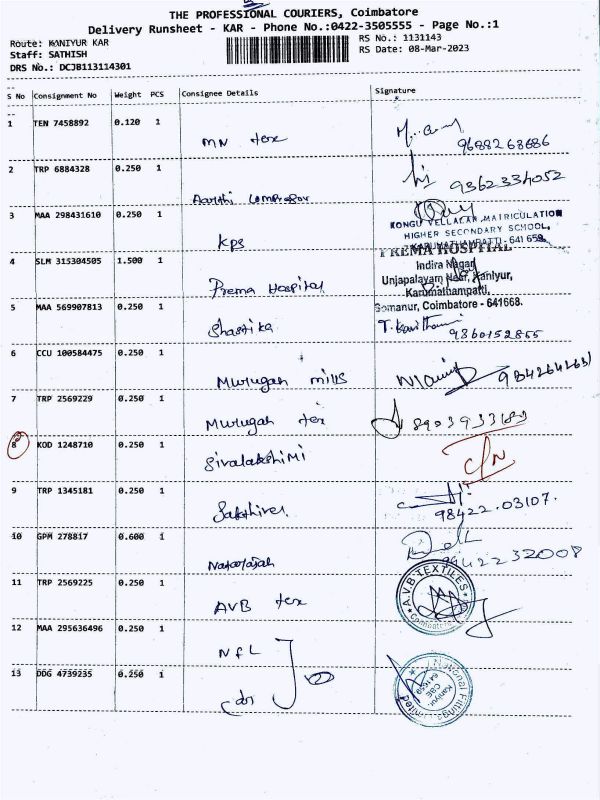 THE PROFESSIONAL COURIERS, Coimbatore
Delivery Runsheet - KAR - Phone No.:0422-3505555 - Page No.:1
Route: KANIYUR KAR
RS No.: 1131143
Staff: SATHISH
RS Date: 08-Mar-2023
DRS No.: DCJB113114301
S No Consignment No Weight PCS Consignee Details Signature
1 TEN 7458892 0.120 1
MN tex 9688268686
2 TRP 6884328 0.250 1
Aarthi 9362334052
3 MAA 298431610 0.250 1
KONGU VELLALAR MATRICULATION
HIGHER SECONDARY SCHOOL,
KARUMATHAMPATTI - 641 659.
KPS
4 SLM 315304505 1.500 1
PREMA HOSPITAL
Indira Nagar,
Unjapalayam Near, Kaniyur,
Karumathampatti,
Somanur, Coimbatore - 641668.
Prema Hospital
5 MAA 569907813 0.250 1
Shastika 9360152855
6 CCU 100584475 0.250 1
Murugan mills
7 TRP 2569229 0.250 1
Murugan tex
8 KOD 1248710 0.250 1
Sivalakshimi
9 TRP 1345181 0.250 1
Sakthivel 98422.03107.
10 GPM 278817 0.600 1
Natarajah 9442232008
11 TRP 2569225 0.250 1
A.V.B TEXTILES
Coimbatore
AVB tex
12 MAA 295636496 0.250 1
NFL
13 DDG 4739235 0.250 1
National Fittings Limited
Kaniyur
CBE
641659